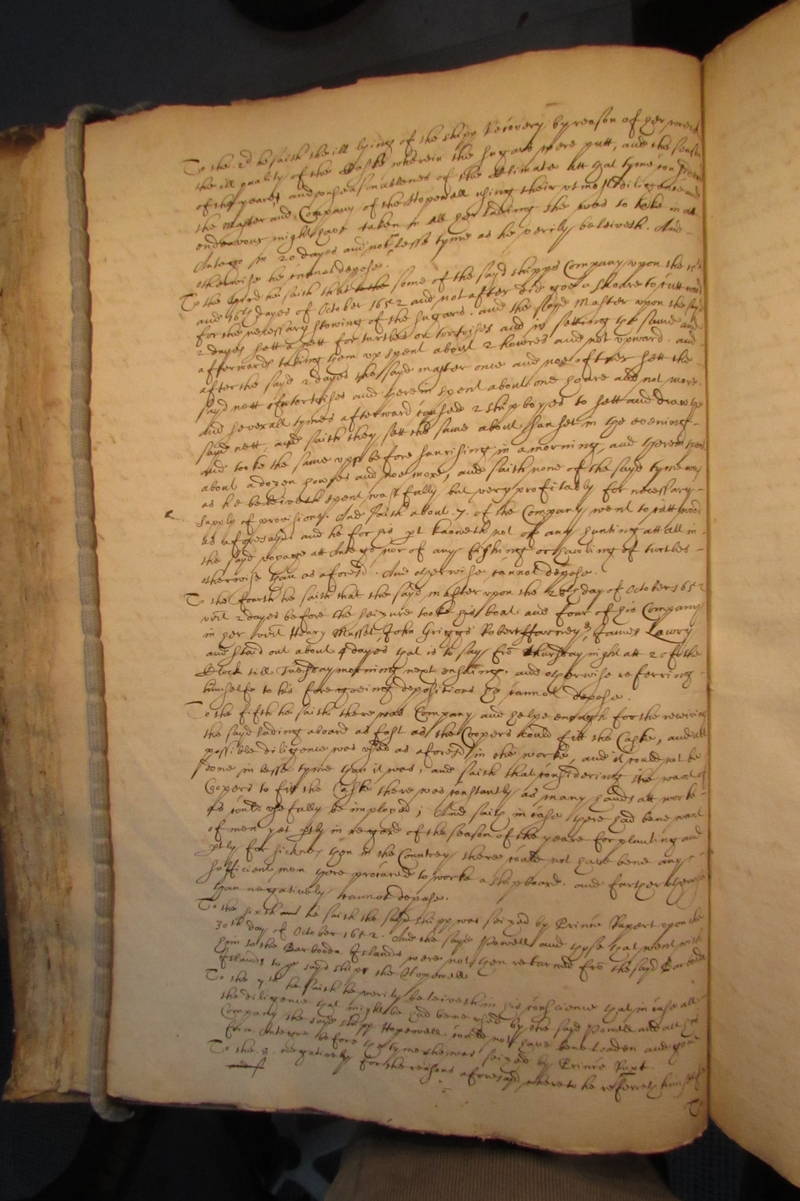 To the 2d he saith the ill lyeing of the shipp Recovery by reason of her mored
the ill quality of the Caske wherein the sugars were putt, and the season
of the yeare and unseasonablenes of the Climate att that tyme
the Master and Company of the Hopewell using their utmost diligence and
endeavour might have taken in all her lading she was to take in att
Antego in 20 dayes and not lesse tyme as he verily beleiveth. And
otherwise he cannot depose.
To the third he saith that some of the sayd shipps Company upon the
and dayes of October 1652 and not after did goe a shoare to cutt wood
for the necessary stowing of the sugars. and the sayd Master upon the sayd
2 dayes sett a nett for turtles or tortoises and in setting the same and
afterwards taking them up spent about 2 howres and not upward. and
after the sayd 2 dayes the sayd master once and noe oftner sett the
sayd nett for tortoises and therein spent about one howre and not more.
And severall tymes afterward 2 shipboyes to sett and draw the
sayd nett, and saith they sett the same about sun set in the evening
and tooke the same upp before sunrising in a morning and therein spent
about a dozen howres and noe more, and saith none of the sayd tyme was
as he beleiveth spent wastfully but very profitably for necessary
supply of provisions. And saith about 7 of the Company went to cutt wood
as aforesayd and he for his pt knoweth not of any hunting att all in
the sayd voyage att Antego, nor of any fishing or hauling of turtles
otherwise than as aforesd. And otherwise cannot depose.
To the fourth he saith that the sayd master upon the day of October 1652
vizt dayes before the seizure tooke his boat and four of his Company
in her vizt Henry Mussell John Griggs Robert Harvey & James Lawry
and staid out about 4 dayes that is to say from night att 2 of the
Clock till Tuesday morning next ensuing, and otherwise referring
himselfe to his foregoeing depositions he cannot depose.
To the fifth he saith there was Company and helpe enough for the receiving
the sayd lading aboard as fast as the Coopers could fitt the Caske, and all
possible diligence was used as aforesd in the worke, and it could not be
done in lesse tyme than it was, and saith that considering the want of
Coopers to fitt the Caske there was constantly as many hands att worke
as could usefully be imployed; And saith in case there had bene want
of men yet ptly in regard of the season of the yeare for planting and
ptly for sicknes then in the Countrey there could not have bene any
sufficient men there procured to worke a shipboard. and further
than negatively cannot depose.
To the sixth he saith the sayd shipp was seized by Prince Rupert upon the
30th day of October 1652. And the sayd Powell and those that went with
him to the Barbodea Islands were not then returned from the sayd Barbodea
Islands to the sayd shipp the Hopewell.
To the 7th he saith he verily beleiveth in his conscience that in case all
the diligence that might be had bene used by the sayd Powell and all his
Company the sayd shipp Hopewell could not have bene loaden and gone
from Antego before the tyme she was seized by Prince Rupert.
To the 8. negatively for the reasons aforesayd whereto he referreth himselfe
To